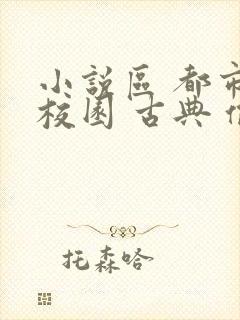 小說區 都市
校園 古典
托森哈